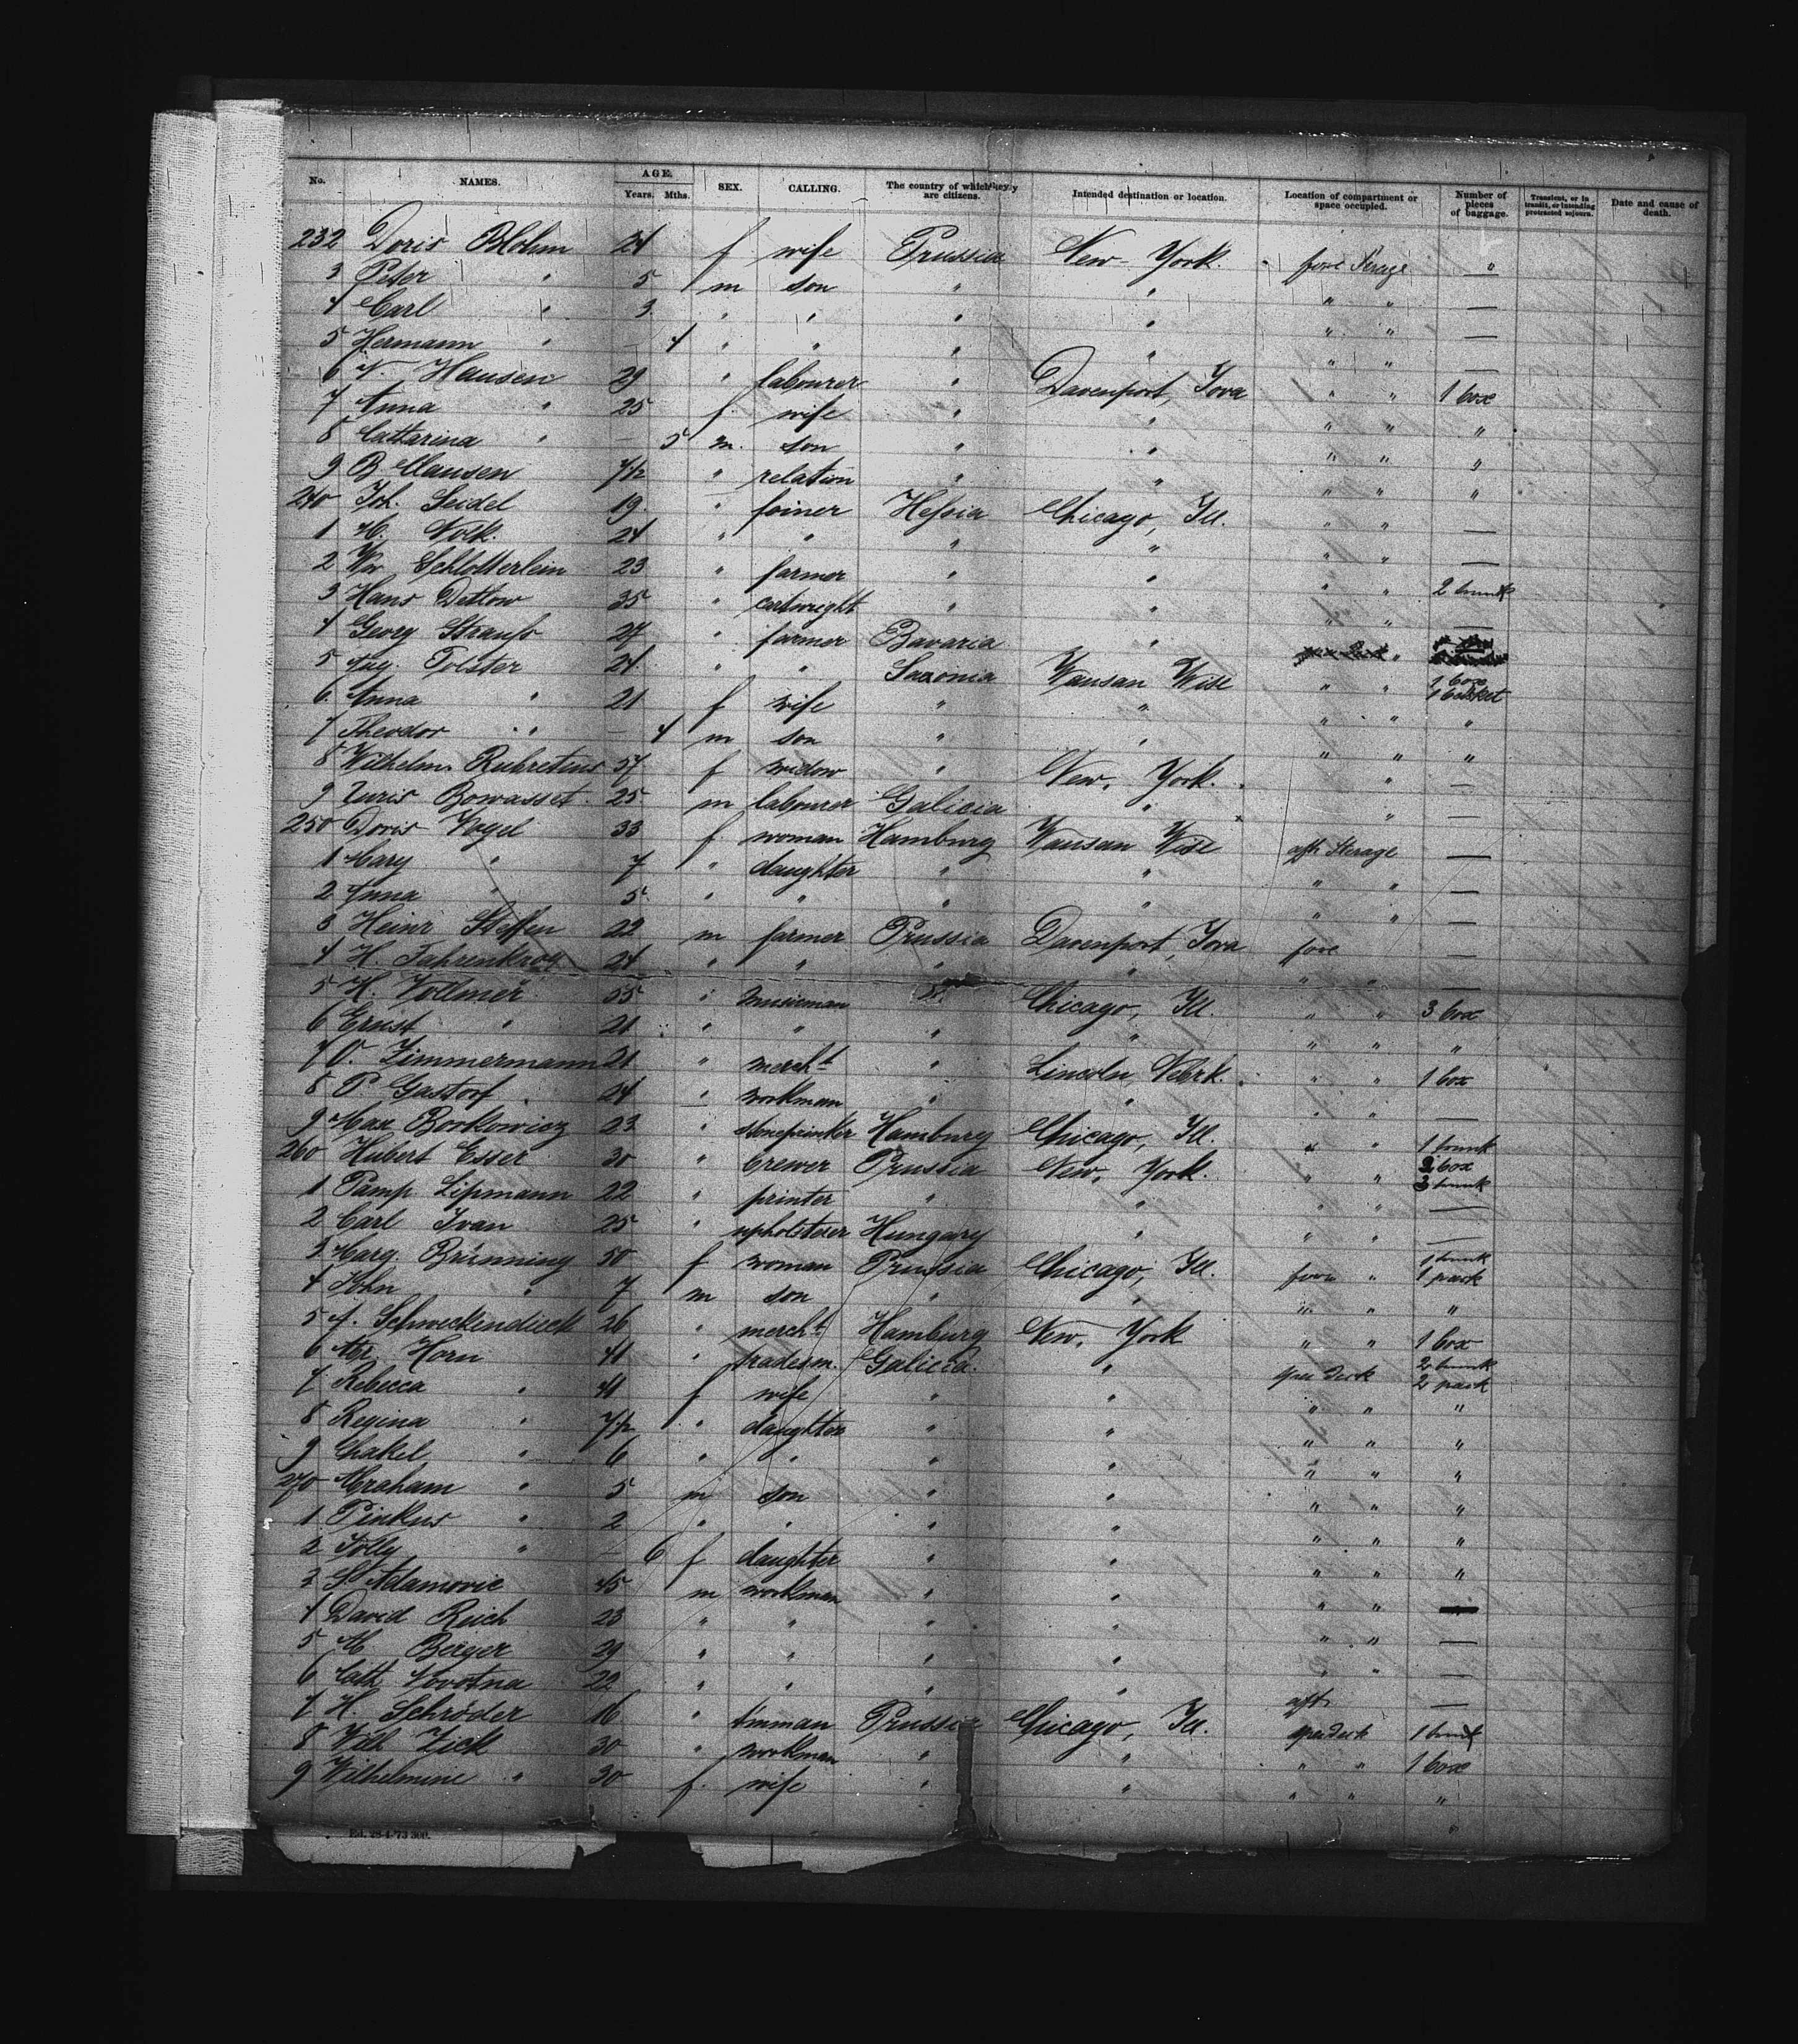 No. NAMES. AGE. Years. Mths. SEX. CALLING. The country of which they are citizens. Intended destination or location. Location of compartment or space occupied. Number of pieces of baggage. Transient, or in transit, or intending protracted sojourn. Date and cause of death.
232 Doris Blohm 24 f wife Prussia New-York. fore Sterage "
3 Peter " 5 m son " " " " —
4 Carl " 3 " " " " " " —
5 Hermann " — 4 " " " " " " —
6 N. Hansen 29 " labourer " Davenport, Iova " " 1 box
7 Anna " 25 f. wife " " " " "
8 Cattarina " — 5 m. son " " " " "
9 B Clausen 7½ " relation " " " " "
240 Joh. Seidel 19 " joiner Hessia Chicago, Ill. " " —
1 H. Volk. 24 " " " " " " —
2 Wm Schlotterlein 23 " farmer " " " " 2 trunk
3 Hans Detlow 35 " cartwright " " " " —
4 Georg Strauss 27 " farmer Bavaria " "
5 Aug. Tolster 24 " " Saxonia Wausau Wise " " 1 box 1 basket
6 Anna " 21 f wife " " " " "
7 Theodor " — 4 m son " " " " "
8 Wilhelm. Rubretius 57 f widow " New-York. " —
9 Juris Bowasset 25 m labourer Galicia " " —
250 Doris Vogel 33 f woman Hamburg Wausau Wise aft Sterage —
1 Mary " 7 " daughter " " " " —
2 Anna " 5 " " " " " " —
3 Heinr Steffen 22 m farmer Prussia Davenport, Iova fore —
4 H. Fahrenkrog 24 " " " " " " —
5 H Vollmer 55 " musicman " Chicago, Ill. " " 3 box
6 Ernst " 21 " " " " " " "
7 O. Zimmermann 21 " mercht " Lincoln, Nebrk. " " 1 box
8 P. Gastorf 24 " workman " " " " —
9 Max Borkowicz 23 " stoneprinter Hamburg Chicago, Ill. " " 1 trunk
260 Hubert Esser 30 " brewer Prussia New-York. " " 2 box 3 trunk
1 Pamp Lipmann 22 " printer " " " " —
2 Carl Ivan 25 " upholsterer Hungary " " " —
3 Marg. Brünning 50 f woman Prussia Chicago, Ill. fore " 1 trunk 1 pack
4 John " 7 m son " " " " "
5 A. Schweckendieck 26 " mercht Hamburg New-York " " 1 box
6 Abr. Horn 41 " tradesm. Galicia. " uper deck 2 trunk 2 pack
7 Rebecca " 41 f wife " " " " "
8 Regina " 7½ " daughter " " " " "
9 Chakel " 6 " " " " " " "
270 Abraham " 5 m son " " " " "
1 Pinkus " 2 " " " " " " "
2 Jolly " — 6 f daughter " " " " "
3 S. Adamovic 45 m workman " " " " —
4 David Reich 23 " " " " " " —
5 M Berger 29 " " " " " " —
6 Cath Novotna 22 " " " " aft —
7 H. Schröder 16 " tinman Prussia Chicago, Ill. uper deck 1 trunk
8 Wilh Zick 30 " workman " " " " 1 box
9 Wilhelmine " 30 f. wife " " " " "
Ed. 28-4-'73 300.